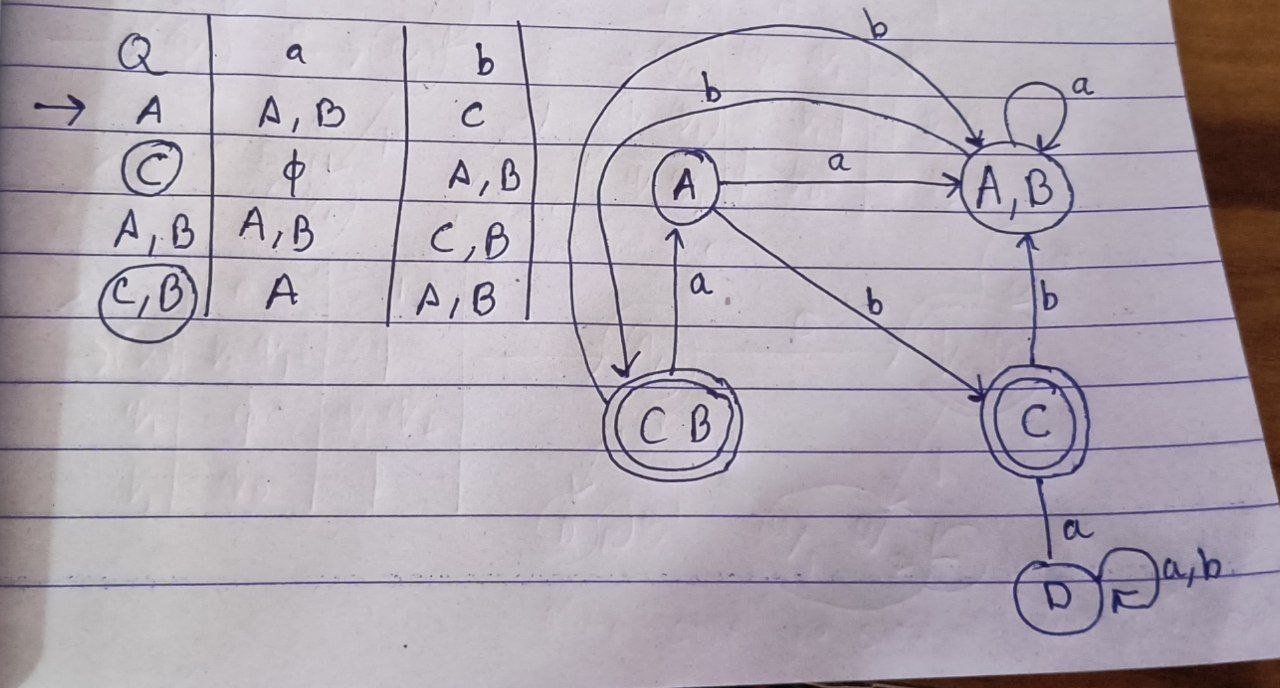 Q a b
→ A A, B C
C ϕ A, B
A, B A, B C, B
C, B A A, B
b
b
a
A a A, B
a b b
C B C
a
D a, b